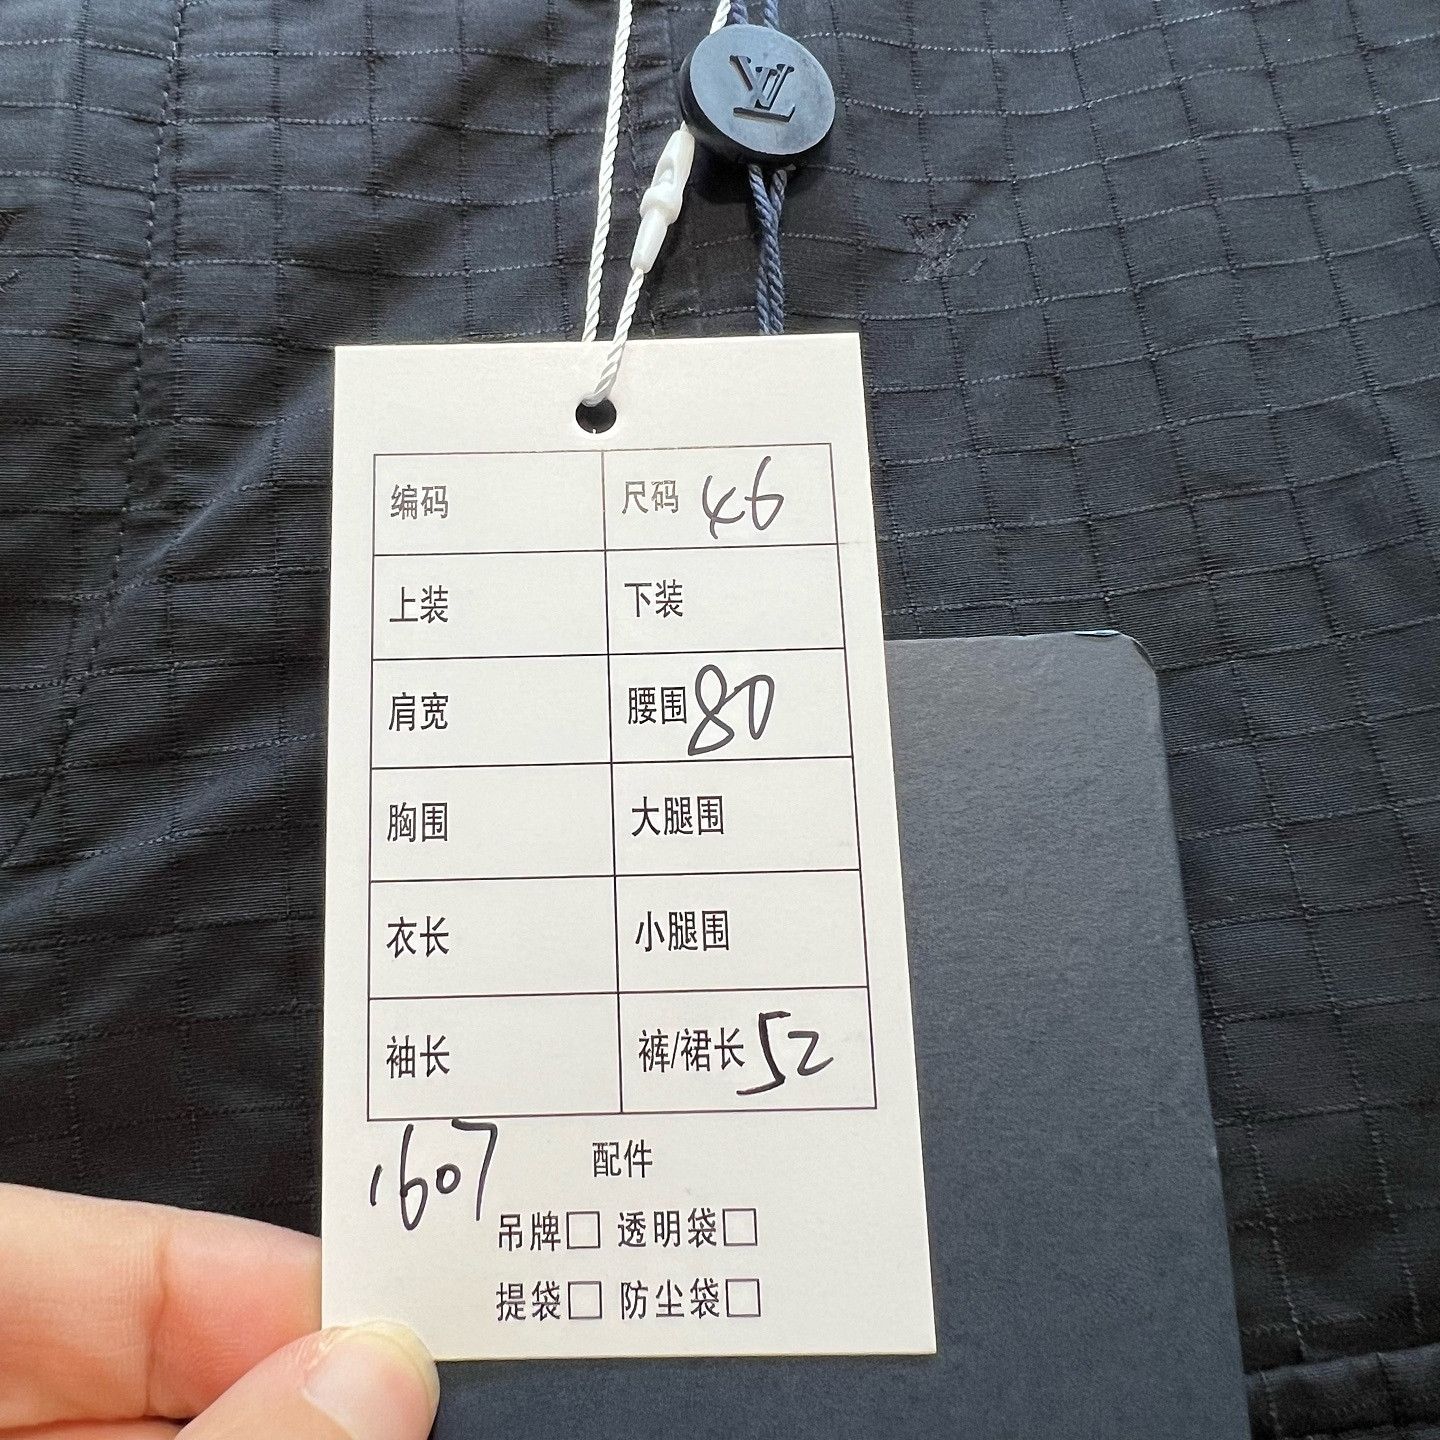 LV
编码 尺码 46
上装 下装
肩宽 腰围 80
胸围 大腿围
衣长 小腿围
袖长 裤/裙长 52
1607 配件
吊牌□ 透明袋□
提袋□ 防尘袋□